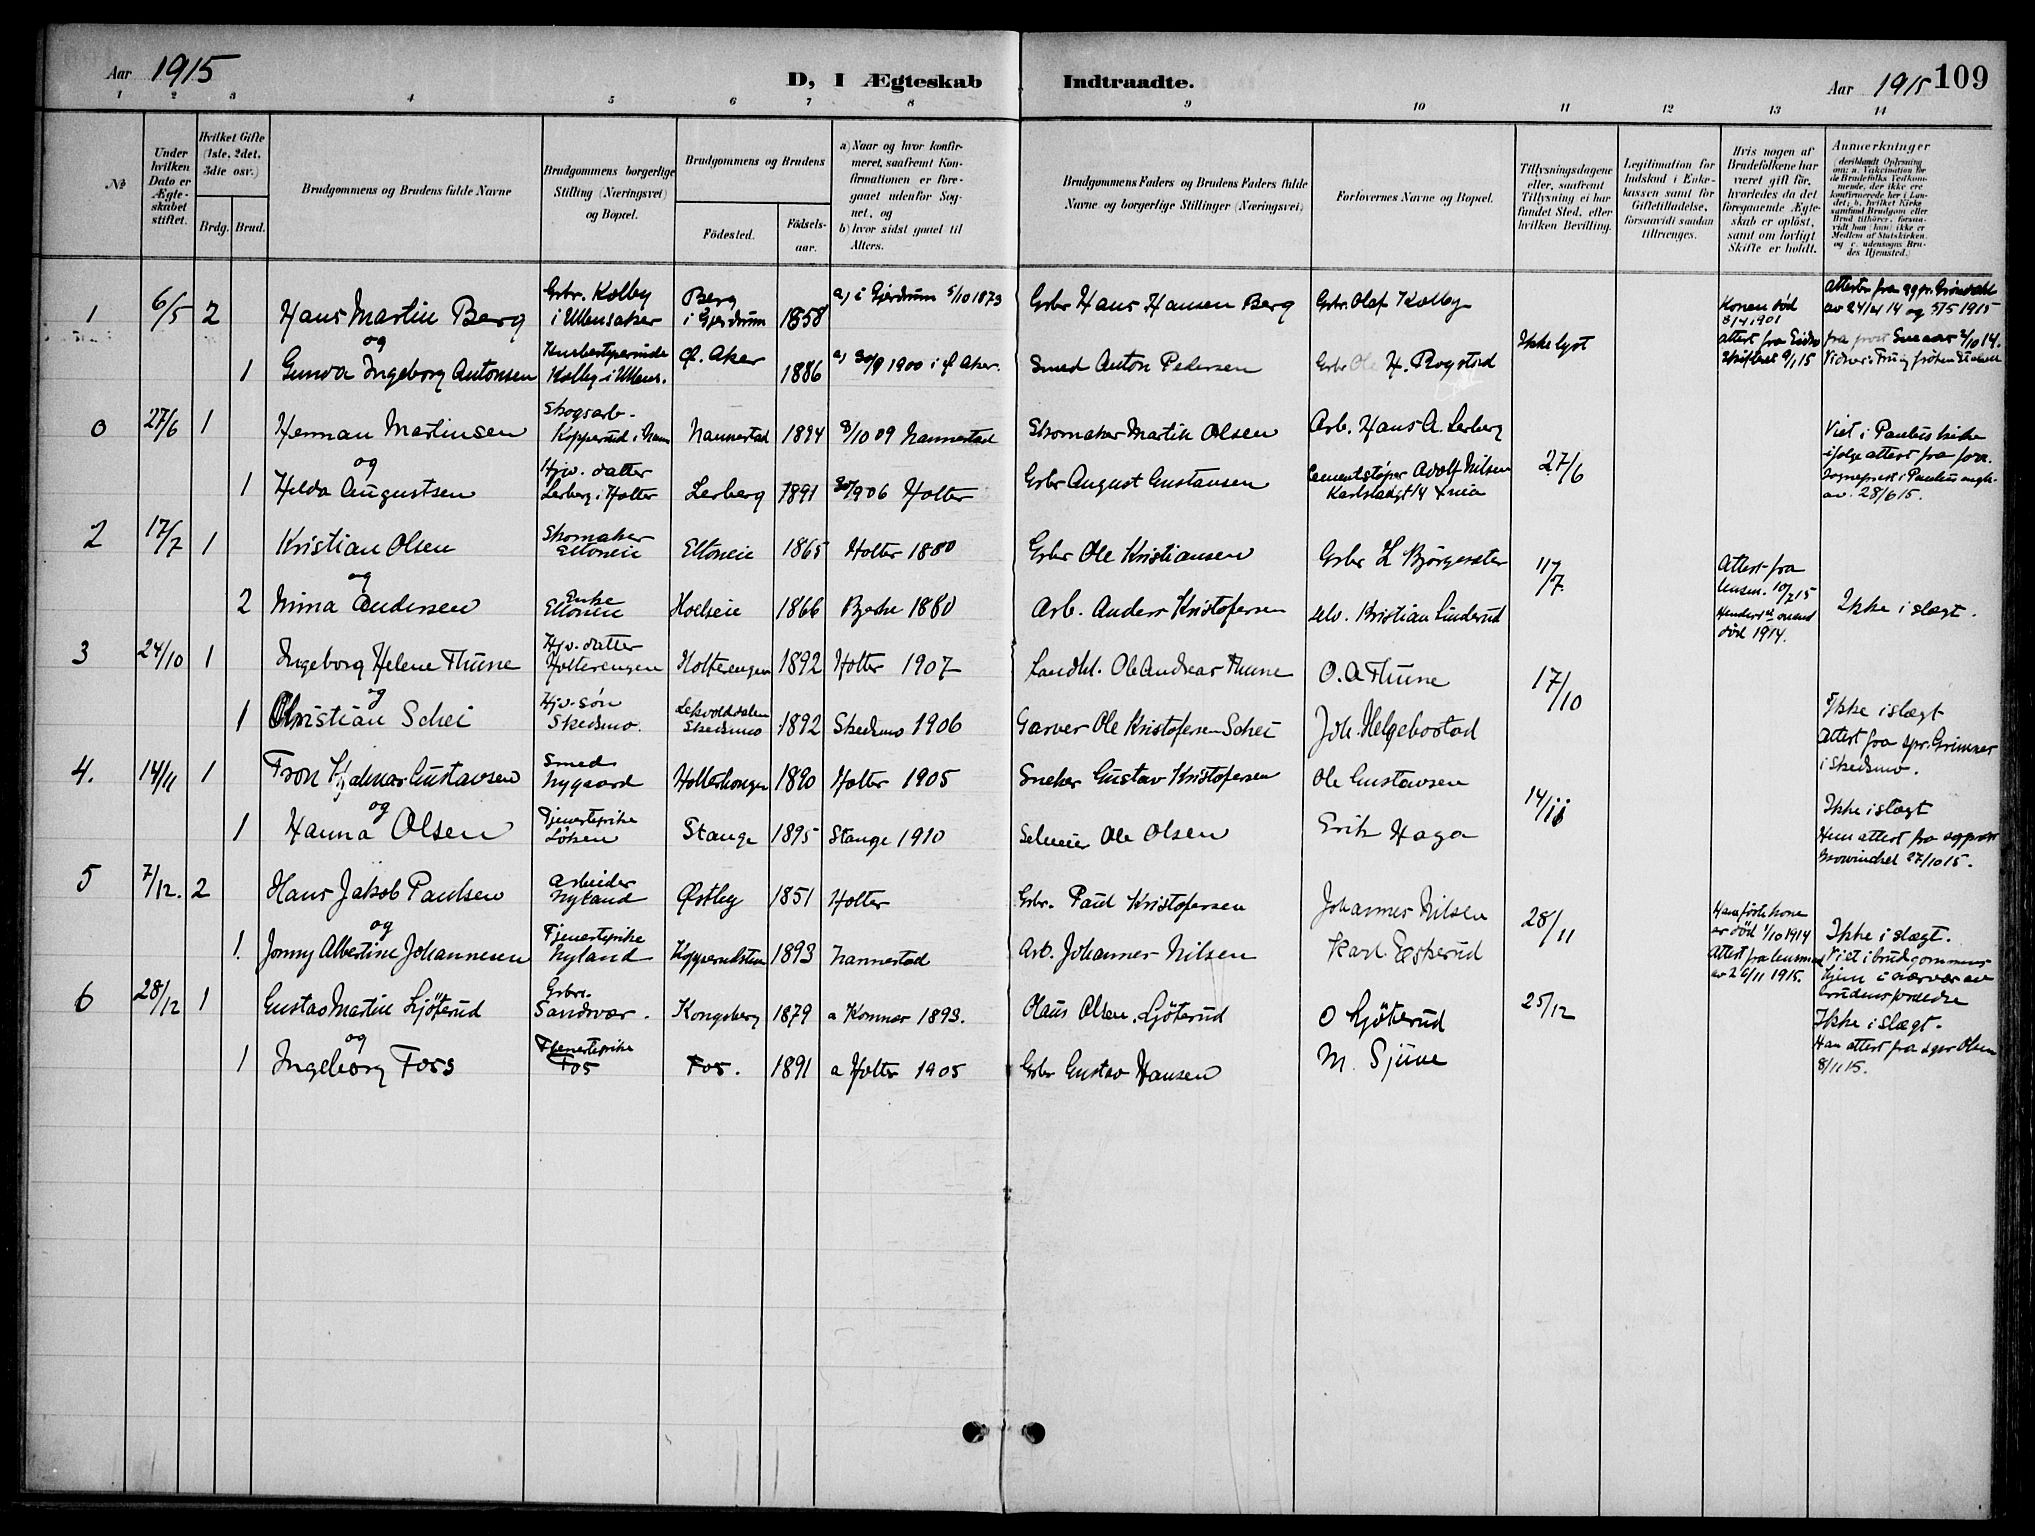 Aar 1915
D, I Ægteskab Indtraadte.
Aar 1915 109
1 2 3 4 5 6 7 8 9 10 11 12 13 14
No
Under hvilken Dato er Ægteskabet stiftet.
Hvilket Gifte (1ste, 2det, 3die osv.)
Brdg. Brud.
Brudgommens og Brudens fulde Navne
Brudgommens borgerlige Stilling (Næringsvei) og Bopæl.
Brudgommens og Brudens
Fødested.
Fødselsaar.
a) Naar og hvor konfirmeret, saafremt Konfirmationen er foregaaet udenfor Sognet, og
b) hvor sidst gaaet til Alters.
Brudgommens Faders og Brudens Faders fulde Navne og borgerlige Stillinger (Næringsvei)
Forlovernes Navne og Bopæl.
Tillysningsdagene eller, saafremt Tillysning ei har fundet Sted, efter hvilken Bevilling.
Legitimation for Indskud i Enkekassen samt for Giftetilladelse, forsaavidt saadan tiltrænges.
Hvis nogen af Brudefolkene har været gift før, hvorledes da det foregaaende Ægteskab er opløst, samt om lovligt Skifte er holdt.
Anmerkninger
(deriblandt Oplysning om: a. Vakcination for de Brudefolks Vedkommende, der ikke ere konfirmerede her i Landet; b. hvilket Kirkesamfund Brudgom eller Brud tilhører, forsaavidt han (hun) ikke er Medlem af Statskirken, og c. udensogns Brudes Hjemsted.)
1 6/5 2 Hans Martin Berg Grbr. Kolby i Ullensaker Berg i Gjerdrum 1858 a) i Gjerdrum 5/10 1873 Grbr Hans Hansen Berg Grbr. Olaf Kolby Ikke lyst Konen død 8/4 1901
og
1 Gunva Ingeborg Antonsen Kolby i Ullens. Ø. Aker 1886 a) 30/9 1900 i Ø Aker. Smed Anton Pedersen Grbr Ole H. Rogstad
0 27/6 1 Herman Martinsen Skogsarb. Kopperud i Nann Nannestad 1894 3/10 09 Nannestad Skomaker Martin Olsen Arb. Hans A. Lerberg 27/6 Viet i Paulus kirke ifølge attest fra
og
1 Hilda Augustsen Hjv. datter Lerberg i Holter Lerberg 1891 30/9 06 Holter Grbr August Gustavsen Cementstøper Adolf Nilsen Karlstadgt 14 Kr.ia av 28/6 15.
2 17/7 1 Kristian Olsen Skomaker Eltoneie Eltoneie 1865 Holter 1880 Grbr Ole Kristiansen Grbr L Bjørgerster 11/7. Attest fra lensm. 10/7 15
og
2 Nina Andersen Enke Eltoneie Holseie 1866 Bjerke 1880 Arb. Anders Kristofersen selv. Kristian Linderud Hendes 1ste mand død 1914. Ikke i slægt.
3 24/10 1 Ingeborg Helene Thune Hjv. datter Holterengen Holterengen 1892 Holter 1907 Landhl. Ole Andreas Thune O. A Thune 17/10
og
1 Christian Schei Hjv. søn Skedsmo. Skedsmo 1892 Skedsmo 1906 Garver Ole Kristofersen Schei Joh. Helgebostad Ikke i slægt Attest fra spr. Grimnes i Skedsmo.
4. 14/11 1 Tron Hjalmar Gustavsen Smed Nygaard Holterhongen 1890 Holter 1905 Sneker Gustav Kristofersen Ole Gustavsen 14/11
og
1 Hanna Olsen Tjenestepike Løken Stange 1895 Stange 1910 Selveier Ole Olsen Erik Haga Ikke i slægt Hun attest fra sogneprest 27/10 15.
5 7/12. 2 Hans Jakob Paulsen Arbeider Nyland Østby 1851 Holter Grbr. Paul Kristofersen Johannes Nilsen 28/11 Hans første kone er død 1/10 1914 Attest fra lensmand av 26/11 1915.
og
1. Jonny Albertine Johannesen Tjenestepike Nyland Kopperudstuen 1893 Nannestad Arb. Johannes Nilsen Karl Eskerud Ikke i slægt. Viet i brudgommens hjem i nærvær av brudens forældre
6 28/12 1 Gustav Martin Ljøterud Grbr. Sandsvær. Kongsberg 1879 a Komnes 1893. Olaus Olsen Ljøterud O Ljøterud 25/12 Ikke i slægt.
og
1 Ingeborg Foss Tjenestepike Fos Fos. 1891 a Holter 1905 Grbr Gustav Hansen M. Sjuve Han attest fra spr Olsen 8/11 15.